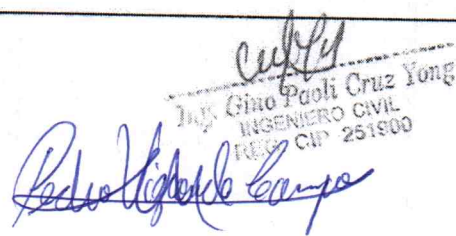 Ing. Gino Paoli Cruz Yong
INGENIERO CIVIL
REG. CIP 251900
Pedro Campo